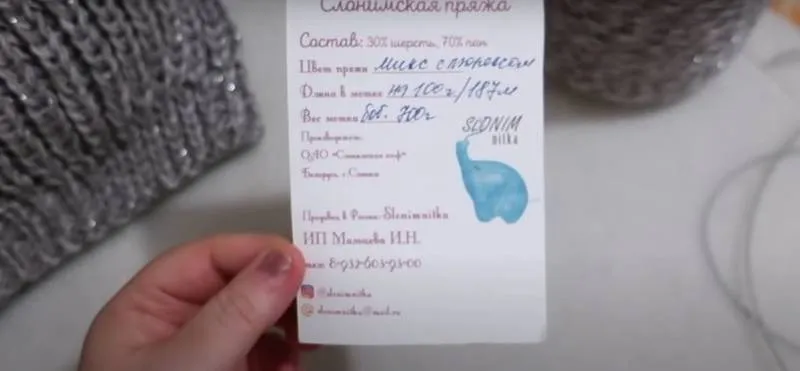 Слонимская пряжа
Состав: 30% шерсть, 70% пан
Цвет пряжи Микс с люрексом
Длина в мотке на 100г/187м
Вес мотка боб. 700г
Производитель:
ОАО «Слонимская
Беларусь, г. Слоним
SLONIM
nitka
Продавец в России: Slonimnitka
ИП Мамаева И.Н.
8-932-603-93-00
@slonimnitka
slonimnitka@mail.ru